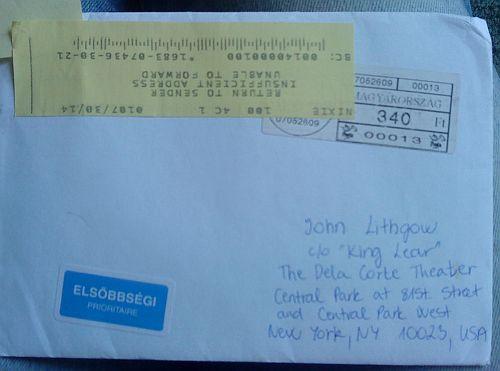 NIXIE 100 4C 1 0107/30/14
RETURN TO SENDER
INSUFFICIENT ADDRESS
UNABLE TO FORWARD
BC: 00140000100 *1683-07436-30-21
07052609 00013
MAGYARORSZÁG
340 Ft
00013
07052609
John Lithgow
c/o "King Lear"
The Dela Corte Theater
Central Park at 81st Street
and Central Park West
New York, NY 10023, USA
ELSŐBBSÉGI
PRIORITAIRE